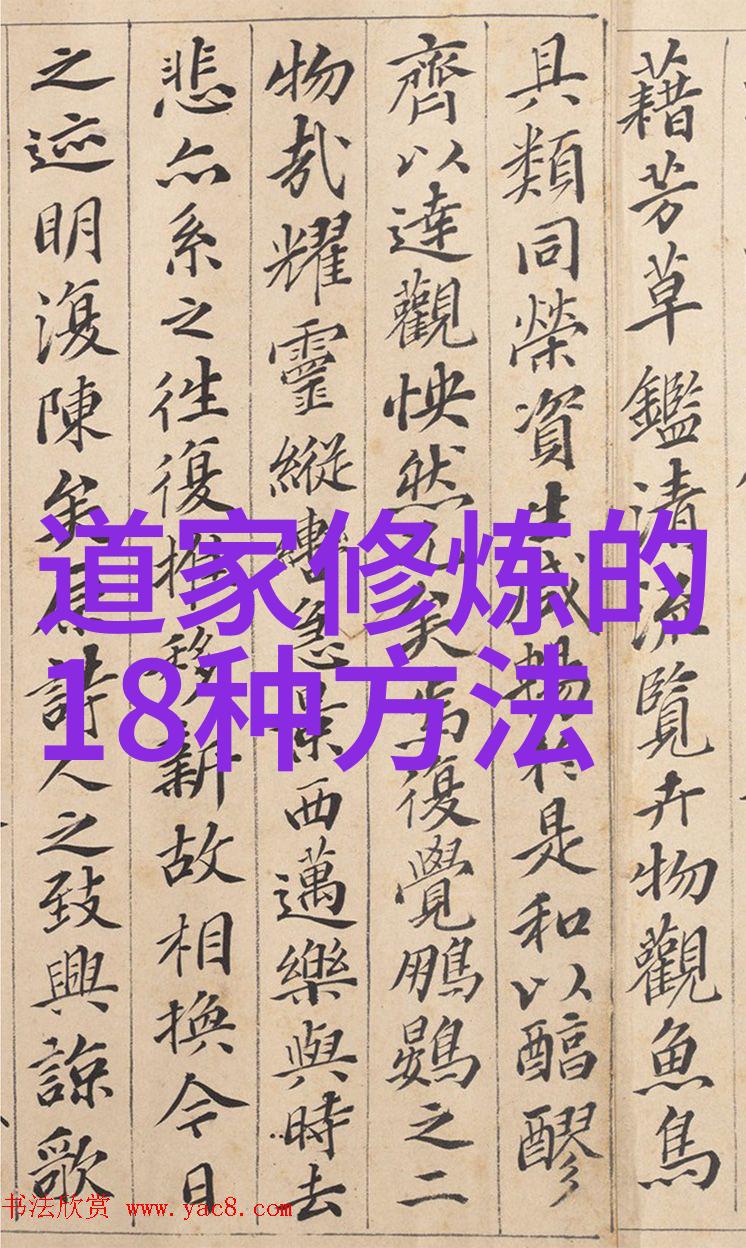 藉芳草鑑清流覽卉物觀魚鳥
具類同榮資生咸暢於是和以醕醪
齊以達觀怏然兀矣焉復覺鵬鷃之二
物哉耀靈縱轡急景西邁樂與時去
悲亦系之往復推移新故相換今日
之迹明復陳矣原詩人之致興諒歌
道家修炼的
18种方法
书法欣赏 www.yac8.com